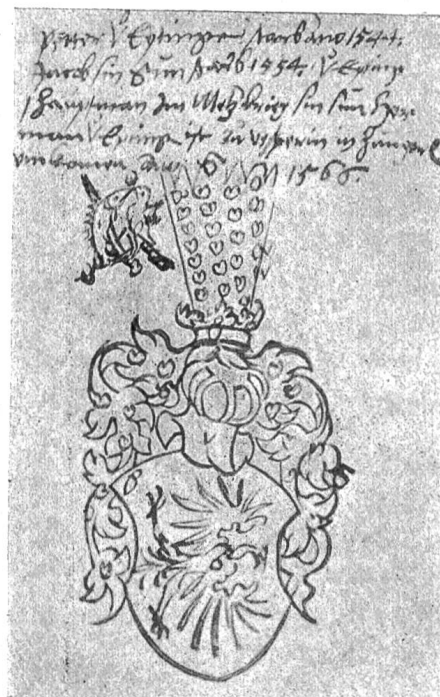 petter V Eptingen starb ano 1544.
Jacob sin Sun starb 1554. V Epting
hauptman Im Metzkrieg sin sun Her
man V Epting ist zu vesperin in Hunger
umkomen Ano 1566.